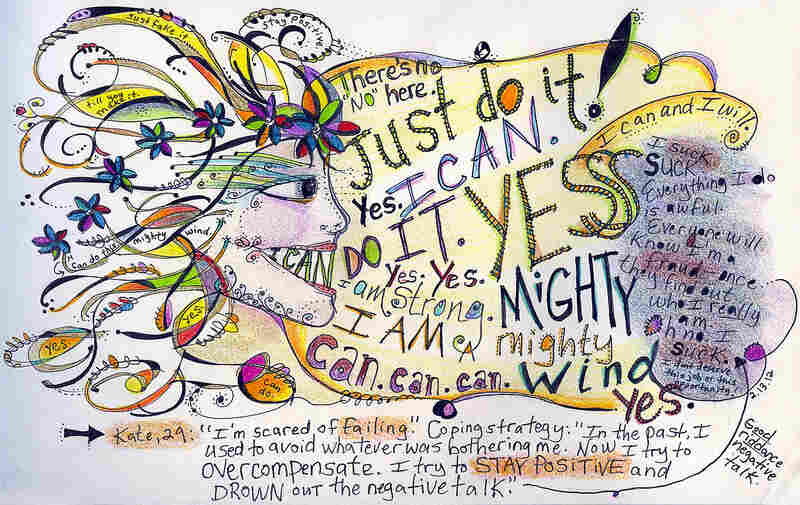 just fake it.
stay positive
till you
make it.
There's no
"No" here.
Just do it!
I can and I will.
Yes. I CAN.
DO IT. YES
I CAN
can do this.
mighty wind.
yes. Yes.
I am strong. MiGHTY
I AM A mighty
can. can. can. wind
yes.
yes.
yes.
can
do.
I suck
Suck.
Everything I do
is awful.
Everyone will
know I'm a
fraud once
they find out
who I really
am. I
suck.
this job or this
opportunity.
2.13.12
Good
riddance
negative
talk.
Kate, 29: "I'm scared of failing." Coping strategy: "In the past, I
used to avoid whatever was bothering me. Now I try to
overcompensate. I try to STAY POSITIVE and
DROWN out the negative talk."